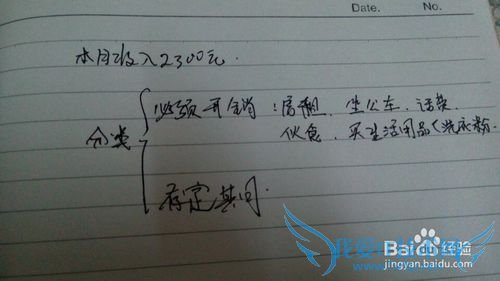 Date. No.
本月收入2300元.
分类
必须开销:房租、坐公车、话费、
伙食、买生活用品(洗衣粉
存定其同.
Baidu经验
jingyan.baidu.com